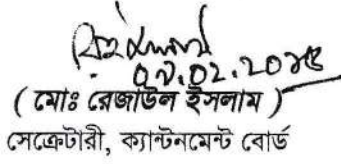 ০৭.০২.২০১৪
( মোঃ রেজাউল ইসলাম )
সেক্রেটারী, ক্যান্টনমেন্ট বোর্ড